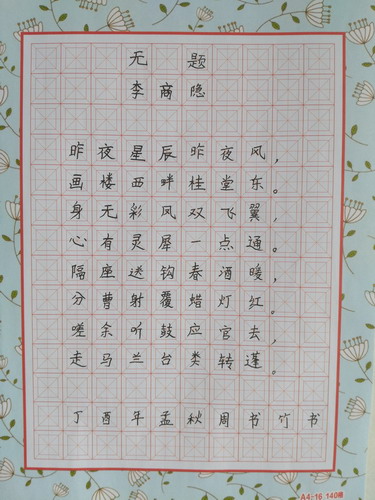 无题
李商隐
昨夜星辰昨夜风，
画楼西畔桂堂东。
身无彩凤双飞翼，
心有灵犀一点通。
隔座送钩春酒暖，
分曹射覆蜡灯红。
嗟余听鼓应官去，
走马兰台类转蓬。
丁酉年孟秋周书竹书
A4-16 140格